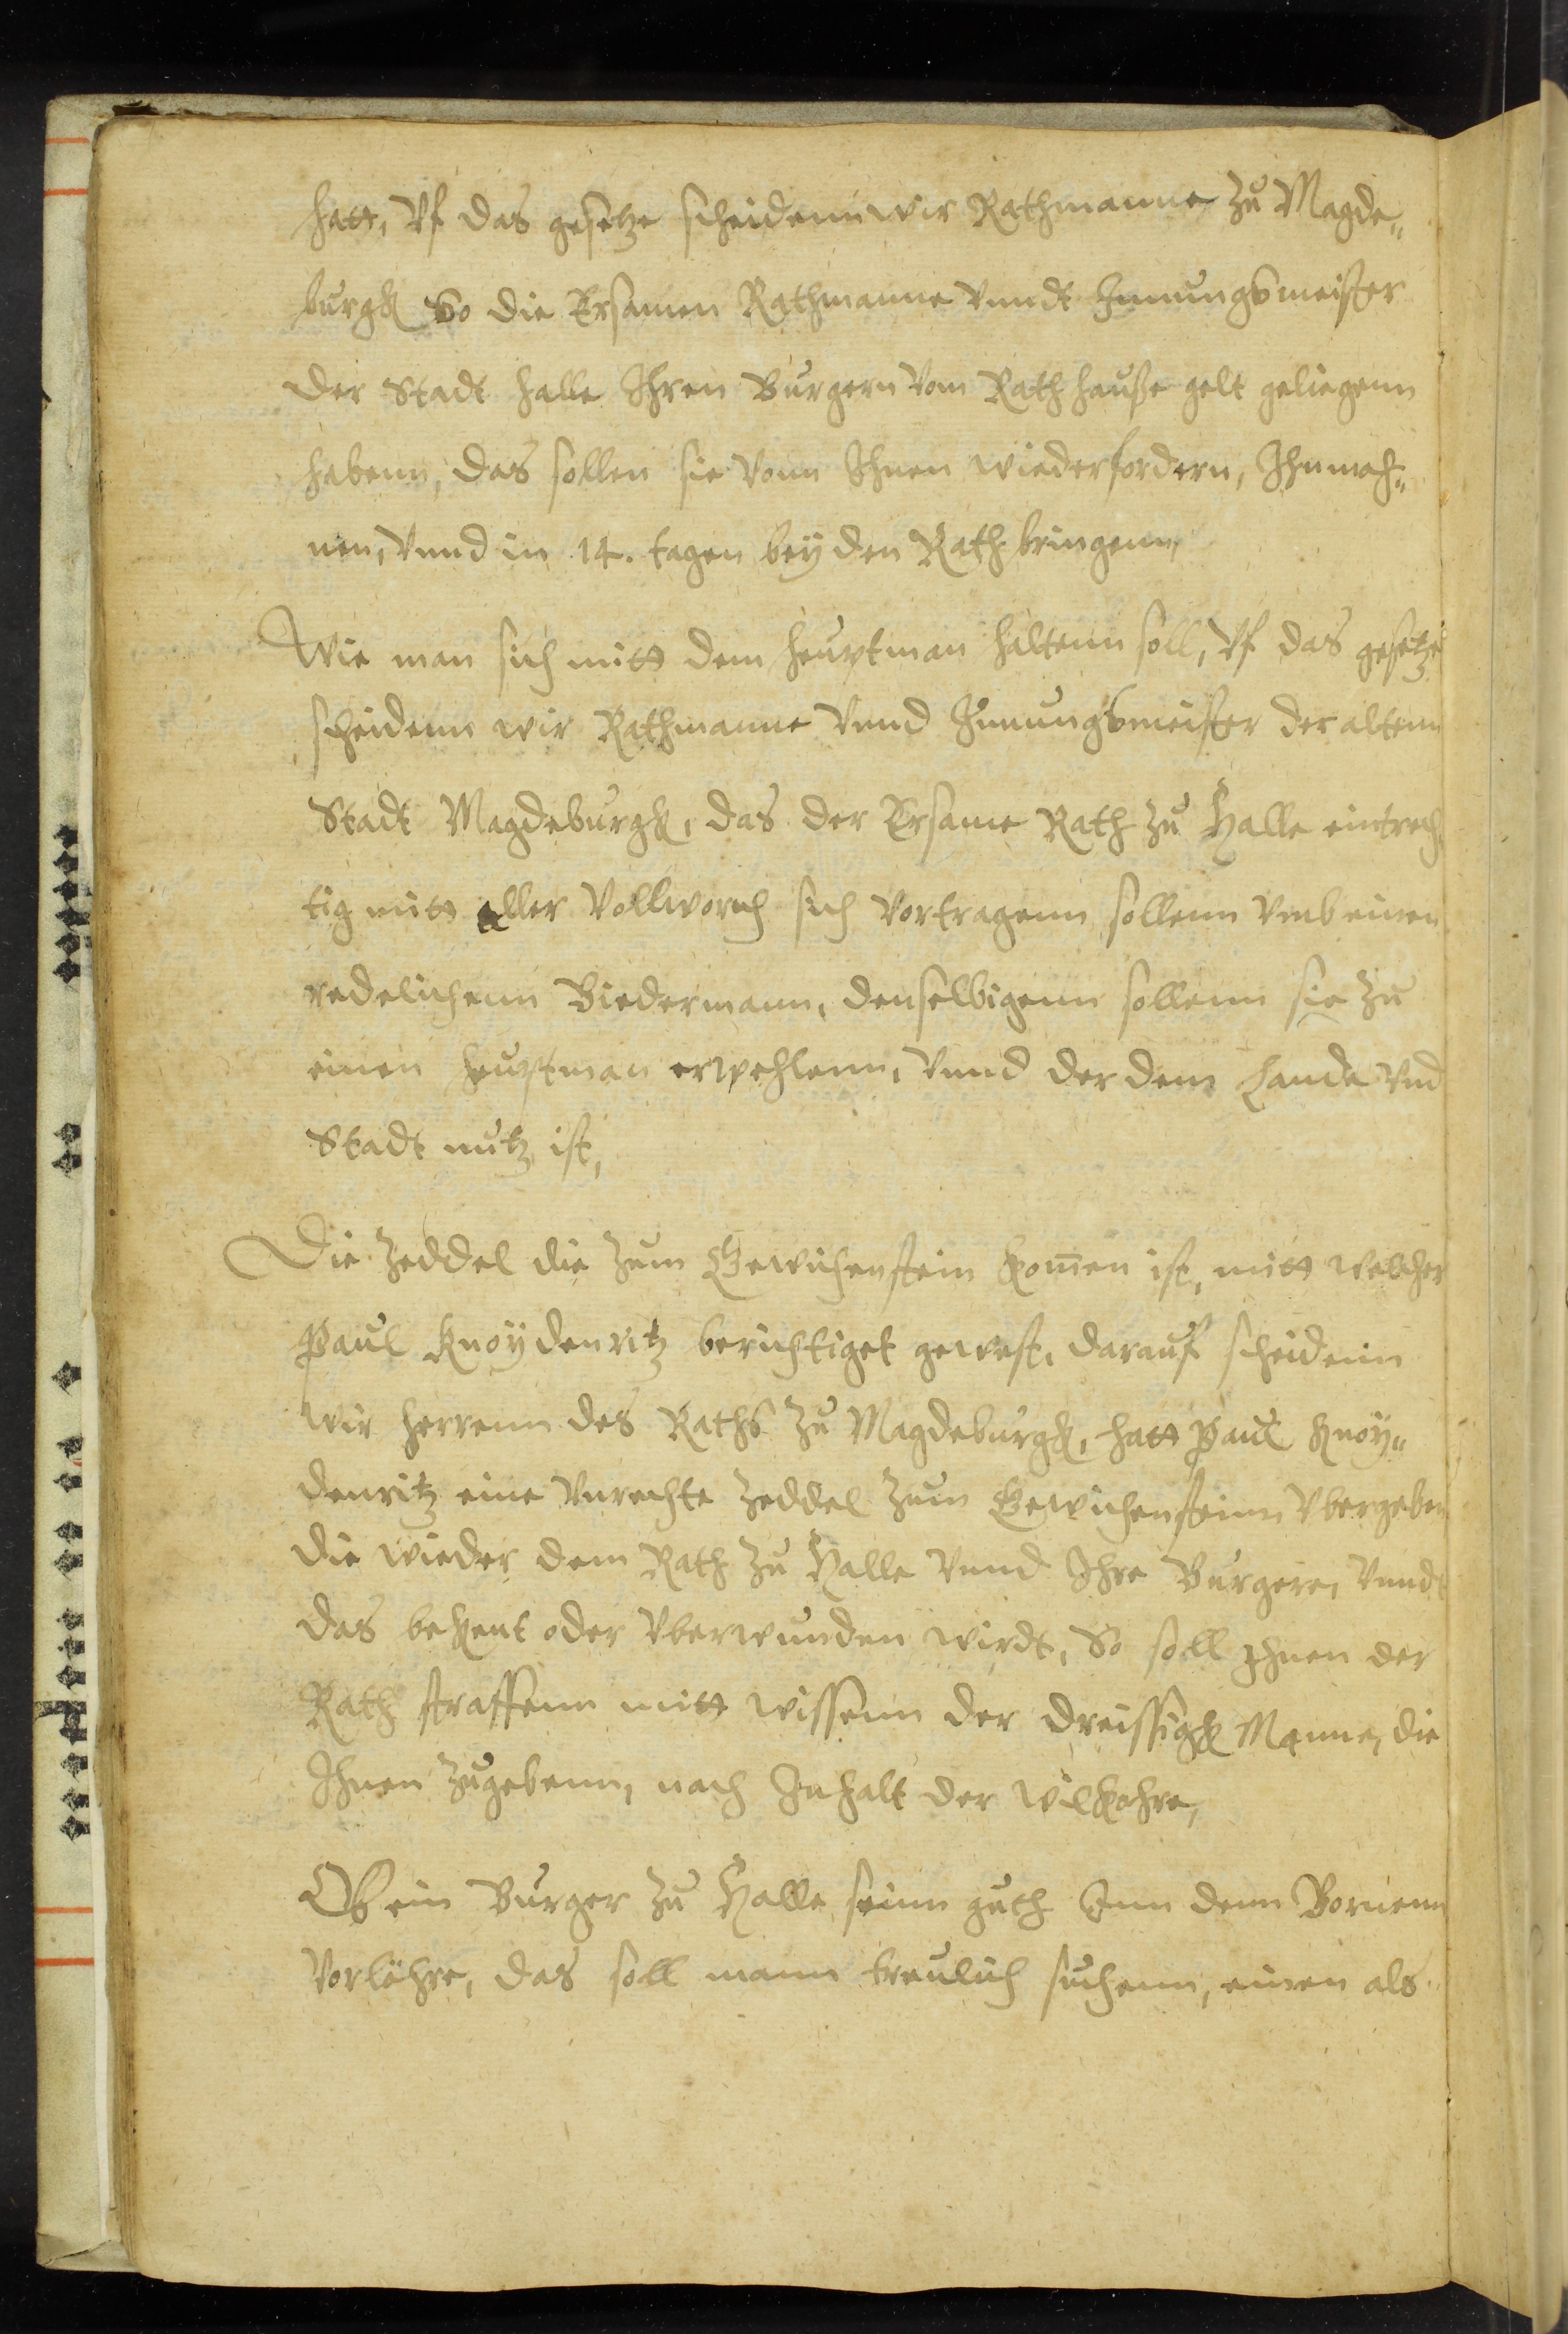 hatt, Vf das gesetze scheidenn wir Rathmanne zu Magde„
burgk So die Ersamen Rathmanne Vnndt Innungsmeister
der Stadt Halle Ihren Burgern Vom Rathhauße gelt geliegenn
habenn, das sollen sie Vonn Ihnen wiederfordern, Ihnmah„
nen, Vnnd in 14. tagen bey den Rath bringenn,
Wie man sich mitt dem heuptman haltenn soll, Vf das gesetze
scheidenn wir Rathmanne Vnnd Innungsmeister der altenn
Stadt Magdeburgk, das der Ersame Rath zu Halle eintrech
tig mitt aller Vollworch sich Vortragenn sollenn Vmb einen
redelichenn Biedermann, denselbigenn sollenn sie zu
einen heuptman erwehlenn, Vnnd der dem Lande Vnd
Stadt nutz ist,
Die Zeddel die zum Gewichenstein komen ist, mitt welcher
Paul Knoydenritz berichtiget gewest, darauf scheidenn
wir herrenn des Raths zu Magdeburgk, hatt Paul Knoy„
denritz eine Vnrechte Zeddel zum Gewichensteinn Vbergeben
die wieder dem Rath zu Halle Vnnd Ihre Burgere, Vnndt
das bekent oder Vberwunden wirdt, So soll Ihnen der
Rath straffenn mitt wissenn der dreissigk Manne, die
Ihnen zugebenn, nach Inhalt der wilkohre,
Ob ein Burger zu Halle seinn guth Inn denn Bornenn
Vorlöhre, das soll mann treulich suchenn, einen als